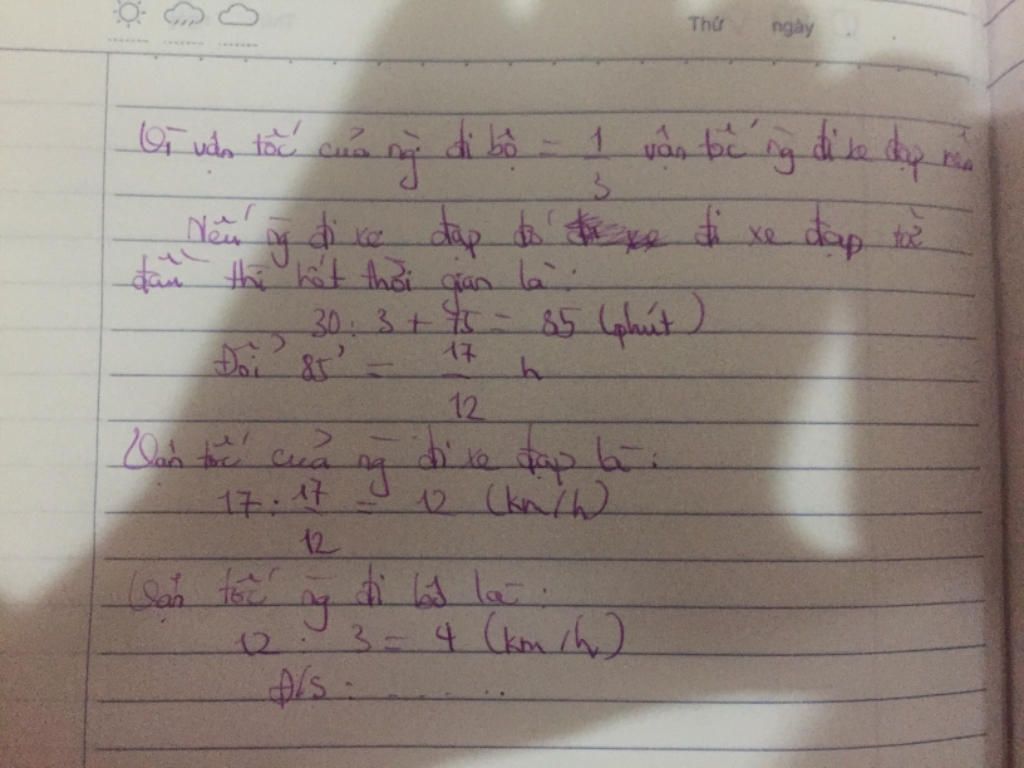 Thứ ngày
Vì vận tốc của ng đi bộ = 1/3 vận tốc ng đi xe đạp nên
Nếu ng đi xe đạp đó đi xe đạp từ
đầu thì hết thời gian là:
30 : 3 + 75 = 85 (phút)
Đổi 85' = 17/12 h
Vận tốc của ng đi xe đạp là:
17 : 17/12 = 12 (km/h)
Vận tốc ng đi bộ là:
12 : 3 = 4 (km/h)
Đ/S : .......